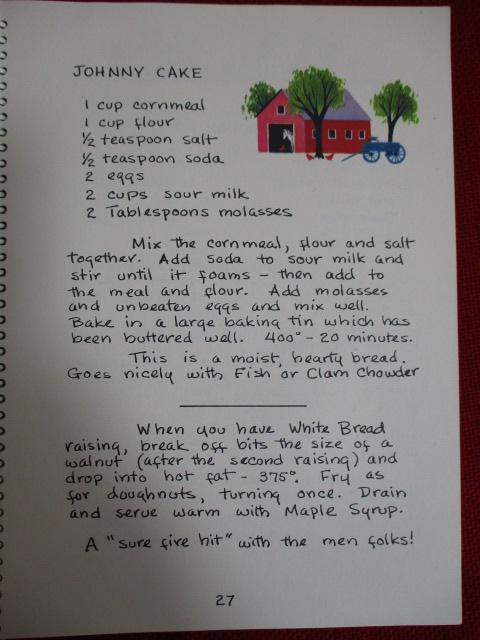 JOHNNY CAKE
1 cup cornmeal
1 cup flour
½ teaspoon salt
½ teaspoon soda
2 eggs
2 cups sour milk
2 Tablespoons molasses
Mix the cornmeal, flour and salt
together. Add soda to sour milk and
stir until it foams - then add to
the meal and flour. Add molasses
and unbeaten eggs and mix well.
Bake in a large baking tin which has
been buttered well. 400° - 20 minutes.
This is a moist, hearty bread.
Goes nicely with Fish or Clam Chowder
When you have White Bread
raising, break off bits the size of a
walnut (after the second raising) and
drop into hot fat - 375°. Fry as
for doughnuts, turning once. Drain
and serve warm with Maple Syrup.
A "sure fire hit" with the men folks!
27